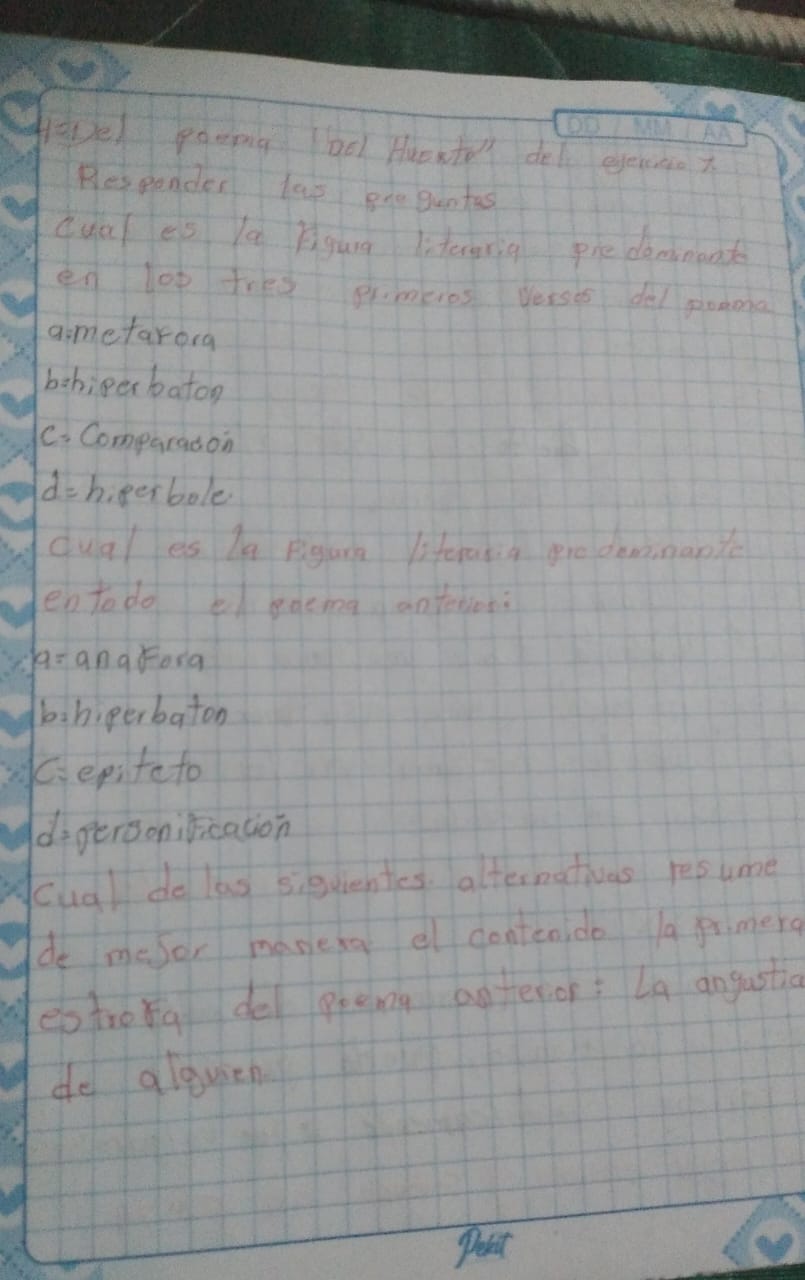 DD MM AA
4=Del poema "Del Huerto" del ejercicio 1.
Responder las preguntas
cual es la Figura literaria predominante
en los tres primeros versos del poema
a=metafora
b=hiperbaton
c= Comparasoón
d=hiperbole.
cual es la Figura literaria predominante
en todo el poema anterior:
a=anaFora
b=hiperbaton
c=epiteto
d=personificacion
cual de las siguientes alternativas resume
de mejor manera el contenido la primera
estrofa del poema anterior: La angustia
de alguien